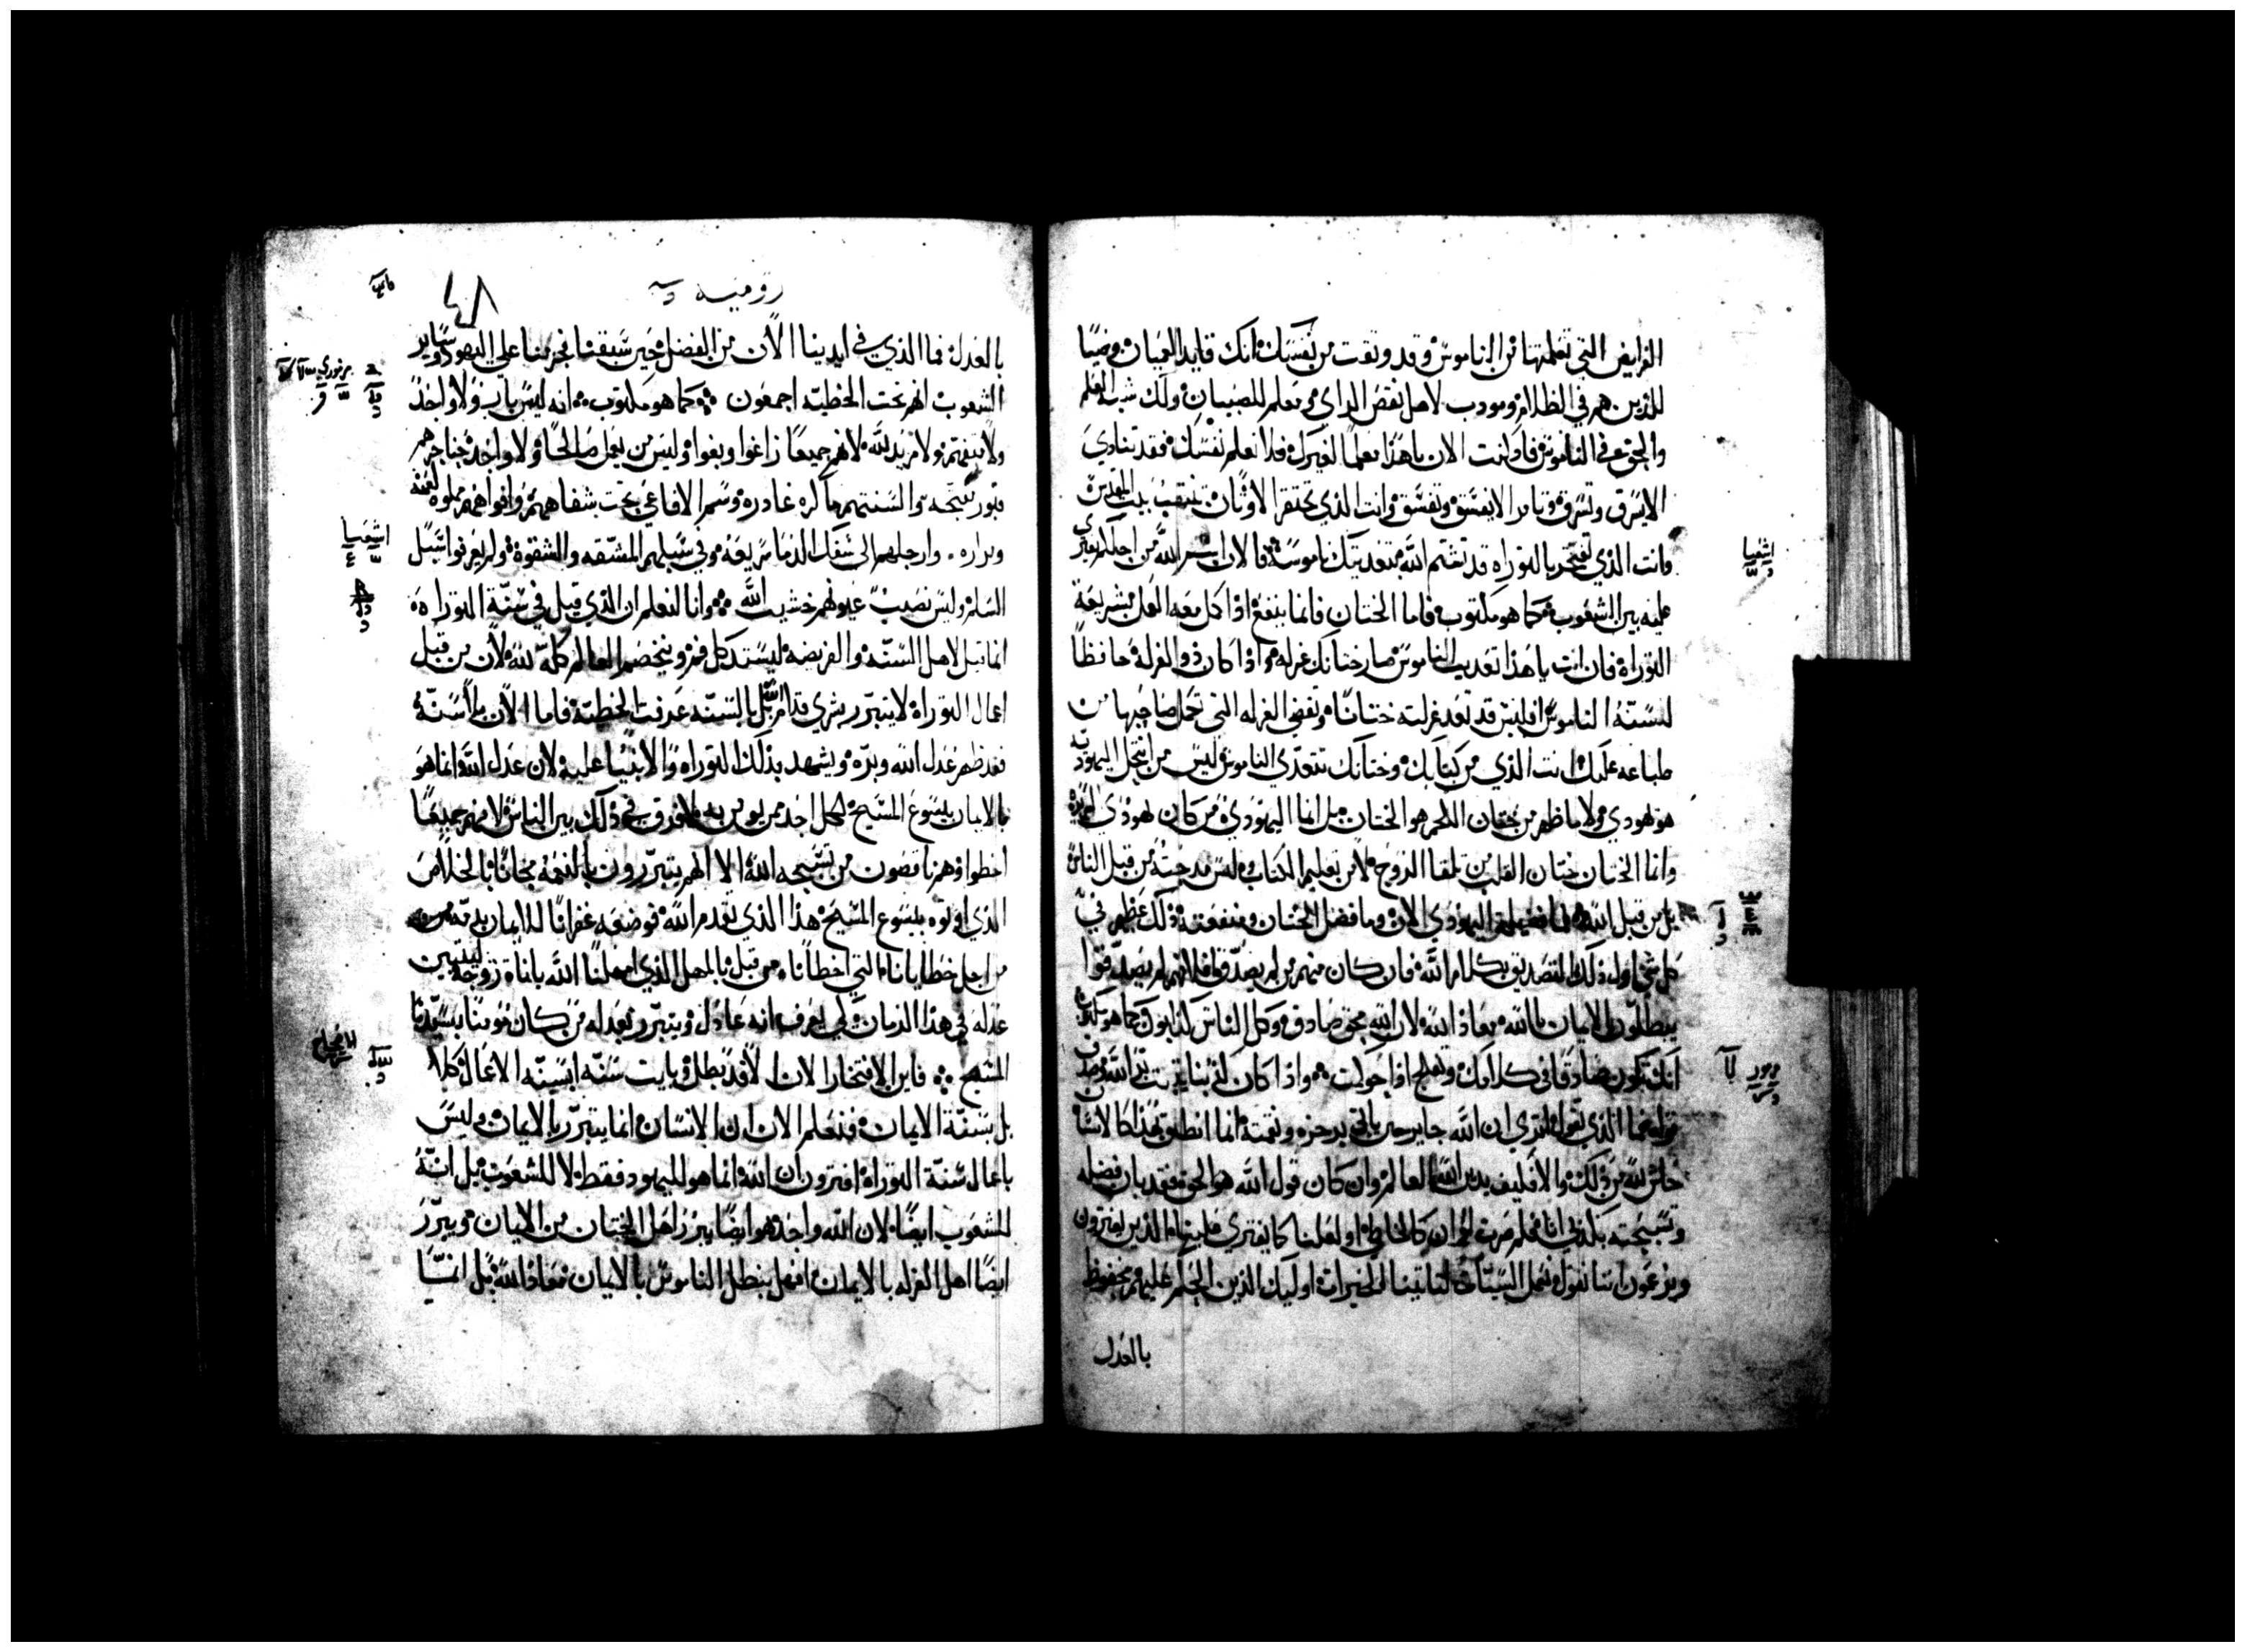 الفرايض التي تعلمتها من الناموس وقد وثقت من نفسك انك قايد العميان وضيا
للذين هم في الظلام ومودب لاهل نقص الراي ومعلم للصبيان ولك شبه العلم
والحق في الناموس فاذ انت الان ياهذا معلما لغيرك فلا تعلم نفسك فقد تنادي
الا يسرق وتسرق وتامر الا يفسق وتفسق وانت الذي تحتقر الاوثان تنتهب بيت المقدس
وانت الذي تفتخر بالتوراه قد تشتم الله بتعديك ناموسه فالان اسم الله من اجلكم يفترى
عليه بين الشعوب كما هو مكتوب فاما الختان فانما ينفع اذا كمل معه العمل بشريعة
التوراة فان انت ياهذا تعديت الناموس صار ختانك غرله واذا كان ذو الغرلة حافظا
لسنة الناموس افليس قد تعد غرلته ختانا وتقضي الغرله التي تحمل صاحبها من
طباعه عليك انت الذي من كتابك وختانك تتعدى الناموس ليس من انتحل اليهودية
هو يهودي ولا ما ظهر من ختان اللحم هو الختان بل انما اليهودي من كان يهودي
وانما الختان ختان القلب من تلقا الروح لا من تعليم الكتاب وليس مدحته من قبل الناس
بل من قبل الله فما فضيلة اليهودي الان وما فضل الختان ومنفعته ذلك عظيم في
كل شي اول ذلك التصديق بكلام الله فان كان منهم من لم يصدقوا فلانهم لم يصدقوا
يبطلون الايمان بالله معاذ الله لان الله محق صادق وكل الناس كذابون كما هو مكتوب
انك تكون صادقا في كلامك وتفلج اذا حوكمت واذا كان اثمنا يثبت بر الله فمن
قوله فما الذي نقول اترى ان الله جاير حين ياتي برجزه ونقمته انما انطلق بهذا كالانسان
حاش لله من ذلك والا فكيف يدين الله العالم وان كان قول الله هو الحق فقد بان فضله
وتسبحته بكذبي انا فلم صرت ادان كالخاطي او لعلنا كما يفتري علينا الذين يفترون
ويزعمون اننا نقول نعمل السيئات لتاتينا الخيرات اوليك الذين الحكم عليهم محفوظ
بالعدل
اشعيا
مزمور
رومية
٤٨
بالعدل فما الذي في ايدينا الان من الفضل حين سبقنا فحرمنا على اليهود وساير
الشعوب انهم تحت الخطيه اجمعون كما هو مكتوب انه ليس بار ولا واحد
ولا متفهم ولا مريد لله لانهم جميعا زاغوا وبغوا وليس من يعمل صالحا ولا واحد حناجرهم
قبور مفتحه والسنتهم ماكره غادره وسم الافاعي تحت شفاههم وافواههم مملوه لعنة
ومراره وارجلهم الى سفك الدما سريعه وفي سبيلهم المشقه والشقوة ولم يعرفوا سبل
السلم وليس نصب عيونهم خشيت الله وانا لنعلم ان الذي قيل في سنة التوراه
انما قيل لاهل السنه والفريضه ليستد كل فم ويخصم العالم كله لله لان من قبل
اعمال التوراة لا يتبرر بشري قدام الله بل بالسنه عرفت الخطية فاما الان بلا سنة
فقد ظهر عدل الله وبره ويشهد بذلك التوراه والانبيا عليه لان عدل الله انما هو
بالايمان بيسوع المسيح لكل احد ممن يومن به ولا فرق في ذلك بين الناس لانهم جميعا
اخطوا وهم ناقصون من تسبحه الله الا انهم يتبررون بالنعمة مجانا بالخلاص
الذي اوتوه بيسوع المسيح هذا الذي تقدم الله فوضعه غفرانا للايمان بدمه
من اجل خطايانا التي اخطانا من قبل بالمهل الذي امهلنا الله باناة روحه ليتبين
عدله في هذا الزمان لكي يعرف انه عادل ويتبرر بعدله من كان مومنا بسيدنا
المسيح فاين الافتخار الان الا قد بطل وبايت سنه ابسنة الاعمال كلا
بل بسنة الايمان فنعلم الان ان الانسان انما يتبرر بالايمان وليس
باعمال سنة التوراة افترون ان الله انما هو لليهود فقط لا للشعوب بل انه
للشعوب ايضا لان الله واحد هو ايضا يبرر اهل الختان من الايمان ويبرر
ايضا اهل الغرله بالايمان افهل نبطل الناموس بالايمان معاذ الله بل انما
اشعيا